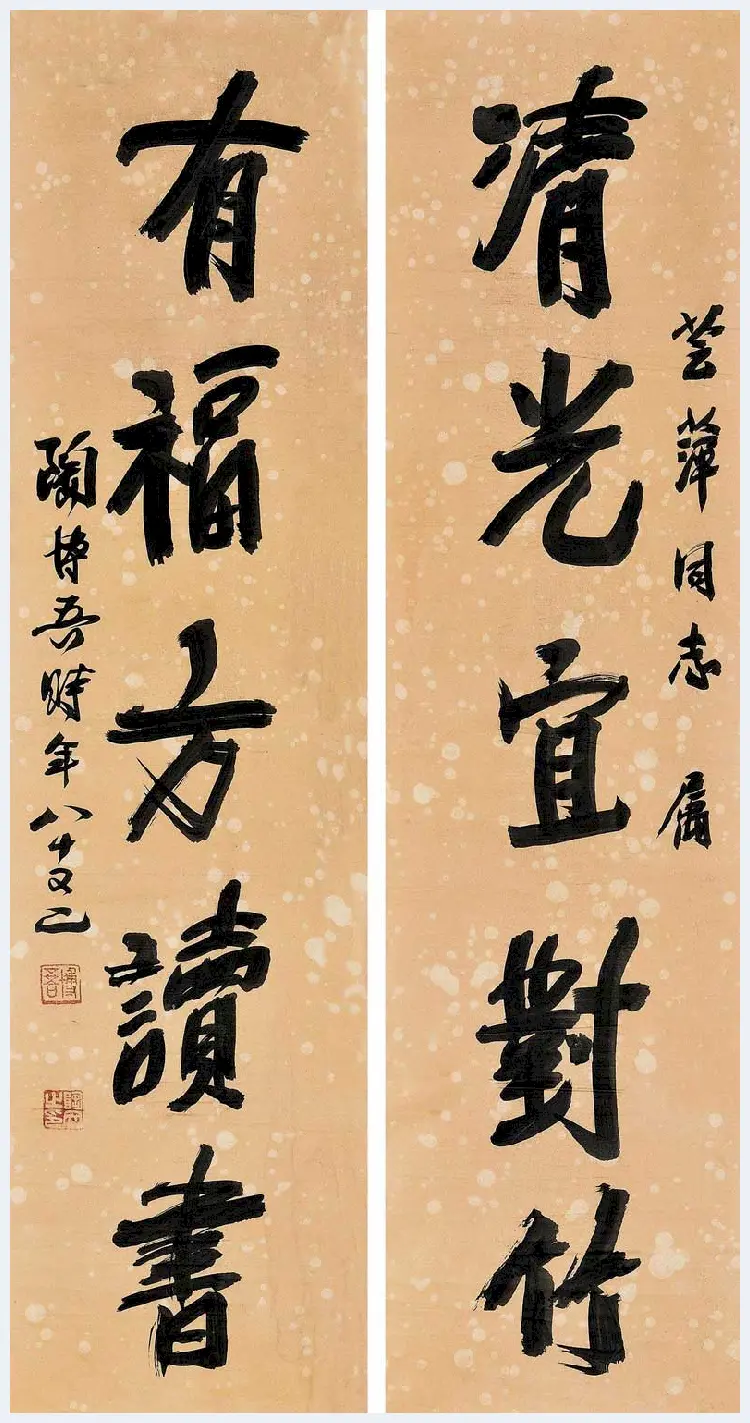 芸同志 屬
清光宜對竹
有福方讀書
陶博吾時年八十又二
博吾